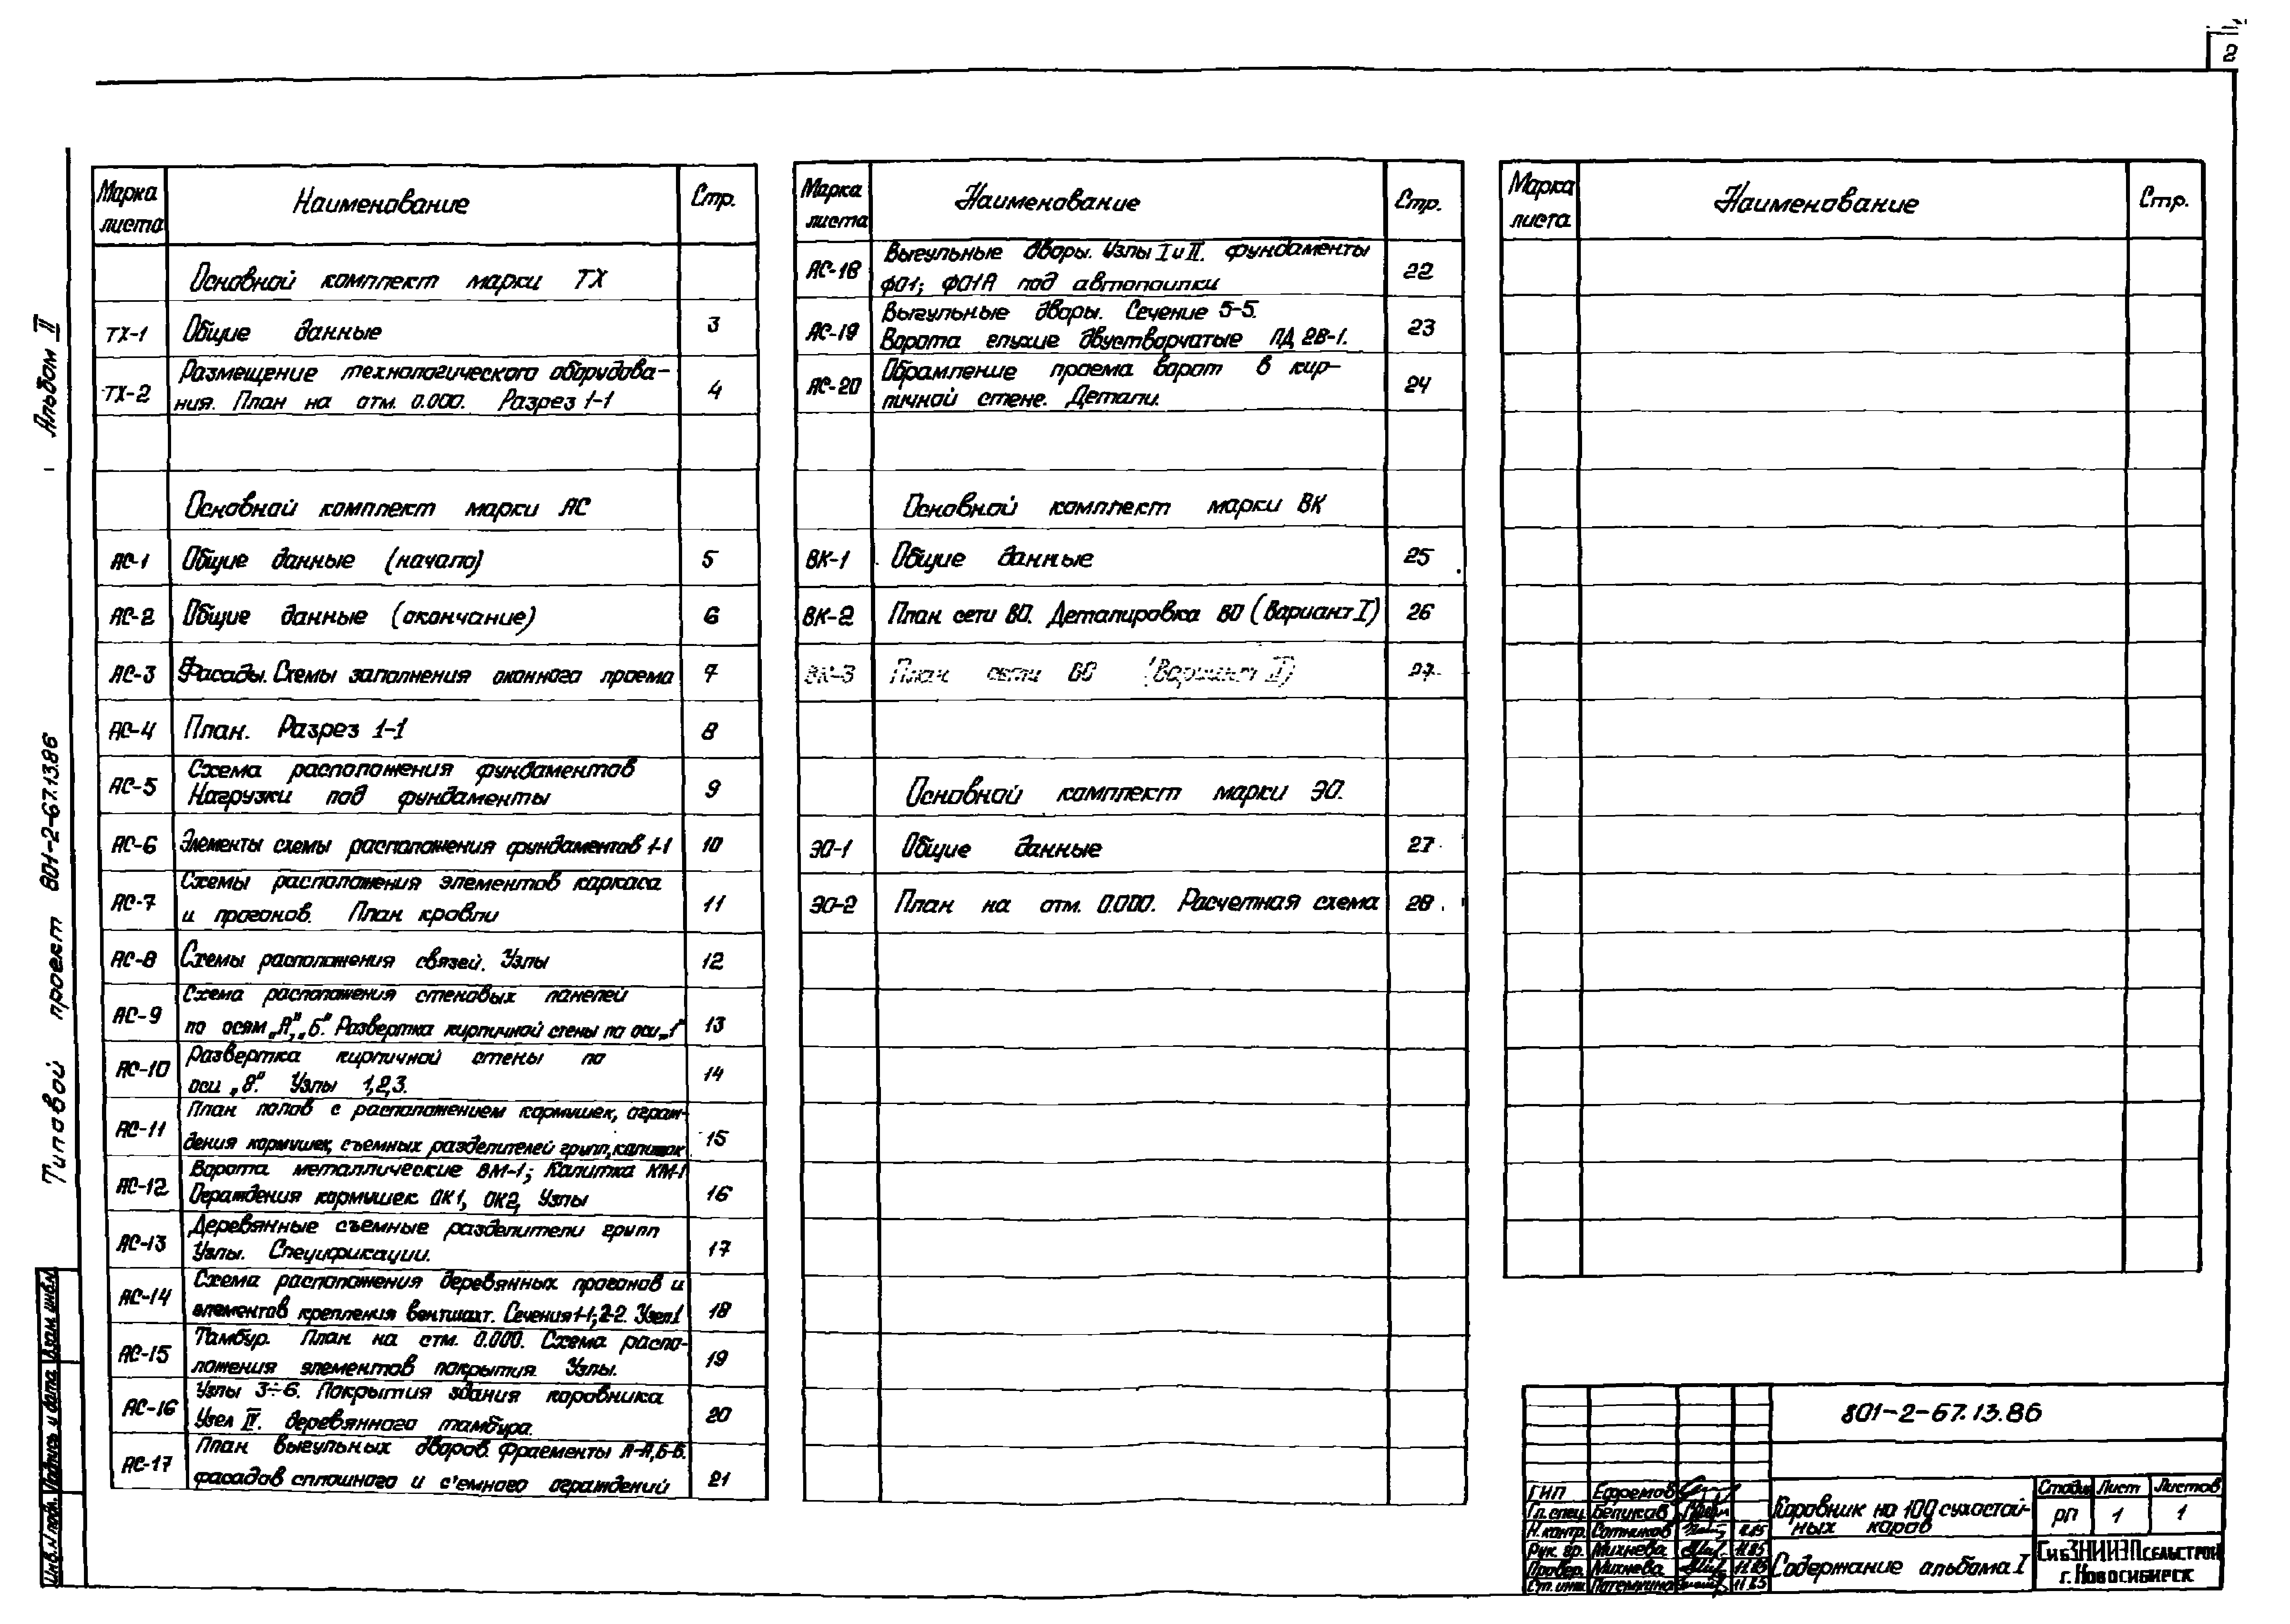 2
Альбом II
Типовой проект 801-2-67.13.86
Взам. инв. №
Подпись и дата
Инв. № подл.
Марка листа Наименование Стр.
Основной комплект марки ТХ
ТХ-1 Общие данные 3
ТХ-2 Размещение технологического оборудова-
ния. План на отм. 0.000. Разрез 1-1 4
Основной комплект марки АС
АС-1 Общие данные (начало) 5
АС-2 Общие данные (окончание) 6
АС-3 Фасады. Схемы заполнения оконного проема 7
АС-4 План. Разрез 1-1 8
АС-5 Схема расположения фундаментов
Нагрузки под фундаменты 9
АС-6 Элементы схемы расположения фундаментов 1-1 10
АС-7 Схемы расположения элементов каркаса
и прогонов. План кровли 11
АС-8 Схемы расположения связей. Узлы 12
АС-9 Схема расположения стеновых панелей
по осям „А”, „Б”. Развертка кирпичной стены по оси „1” 13
АС-10 Развертка кирпичной стены по
оси „8”. Узлы 1,2,3. 14
АС-11 План полов с расположением кормушек, ограж-
дения кормушек, съемных разделителей групп, калиток 15
АС-12 Ворота металлические ВМ-1; Калитка КМ-1
Ограждения кормушек ОК1, ОК2, Узлы 16
АС-13 Деревянные съемные разделители групп
Узлы. Спецификации. 17
АС-14 Схема расположения деревянных прогонов и
элементов крепления вентшахт. Сечения 1-1; 2-2. Узел 1 18
АС-15 Тамбур. План на отм. 0.000. Схема распо-
ложения элементов покрытия. Узлы. 19
АС-16 Узлы 3÷6. Покрытия здания коровника
Узел IV. деревянного тамбура. 20
АС-17 План выгульных дворов. Фрагменты А-А, Б-Б.
фасадов сплошного и с'емного ограждений 21
Марка листа Наименование Стр.
АС-18 Выгульные дворы. Узлы I и II. фундаменты
ФО1; ФО1А под автопоилки 22
АС-19 Выгульные дворы. Сечение 5-5.
Ворота глухие двустворчатые ПД 2В-1. 23
АС-20 Обрамление проема ворот в кир-
пичной стене. Детали. 24
Основной комплект марки ВК
ВК-1 Общие данные 25
ВК-2 План сети ВО. Деталировка ВО (Вариант I) 26
ВК-3 План сети ВО (Вариант II) 27
Основной комплект марки ЭО.
ЭО-1 Общие данные 27
ЭО-2 План на отм. 0.000. Расчетная схема 28
Марка листа Наименование Стр.
801-2-67.13.86
ГИП Ефремов
Гл. спец. Беликов
Н. контр. Сотников 11.85
Рук. гр. Михнева 11.85
Провер. Михнева 11.85
Ст. инж. Потемкина 11.85
Коровник на 100 сухостой-
ных коров
Стадия Лист Листов
РП 1 1
Содержание альбома I
СибЗНИИЭПсельстрой
г. Новосибирск